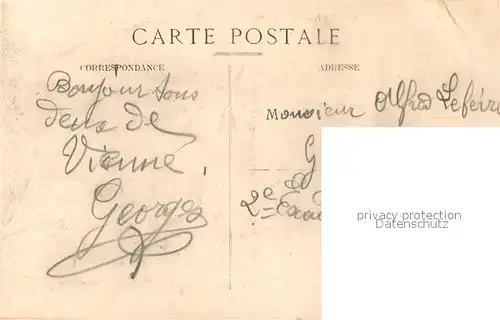 CARTE POSTALE
CORRESPONDANCE
ADRESSE
Bonjour tous
deux de
Vienne,
Georges
Monsieur Alfred Lefévre
G
2e
privacy protection
Datenschutz